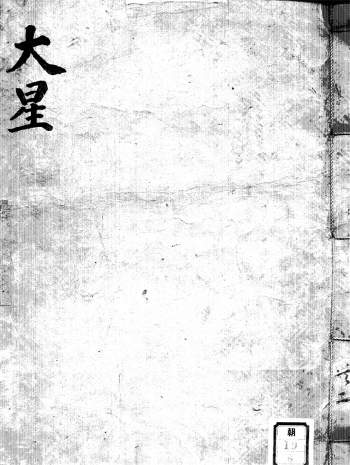 大星
朝
19